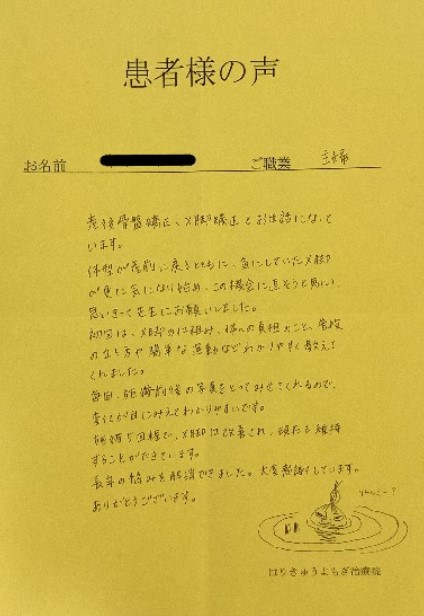 患者様の声
お名前 ご職業 主婦
産後骨盤矯正、X脚矯正とお世話になって
います。
体型が産前に戻るとともに、気にしていたX脚
が更に気になり始め、この機会に直そうと思い、
思いきって先生にお願いしました。
初回は、X脚の仕組み、体への負担のこと、普段
の立ち方や簡単な運動などわかりやすく教えて
くれました。
毎回、施術前後の写真をとってみせてくれるので、
変化が目にみえてわかりやすいです。
施術5回程で、X脚は改善され、現在も維持
することができています。
長年の悩みを解消できました。大変感謝しています。
ありがとうございます。
はりきゅうよもぎ治療院